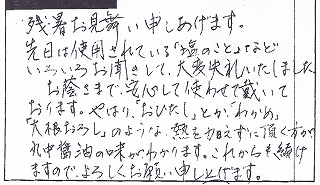 残暑お見舞い申しあげます。
先日は使用されている「塩のこと」など
いろいろお聞きして、大変失礼いたしました。
お蔭さまで、安心して使わせて戴いて
おります。やはり、「おひたし」とか「わかめ」
「大根おろし」のような、熱を加えずに頂く方が
丸中醤油の味がわかります。これからも続け
ますので、よろしくお願い申し上げます。